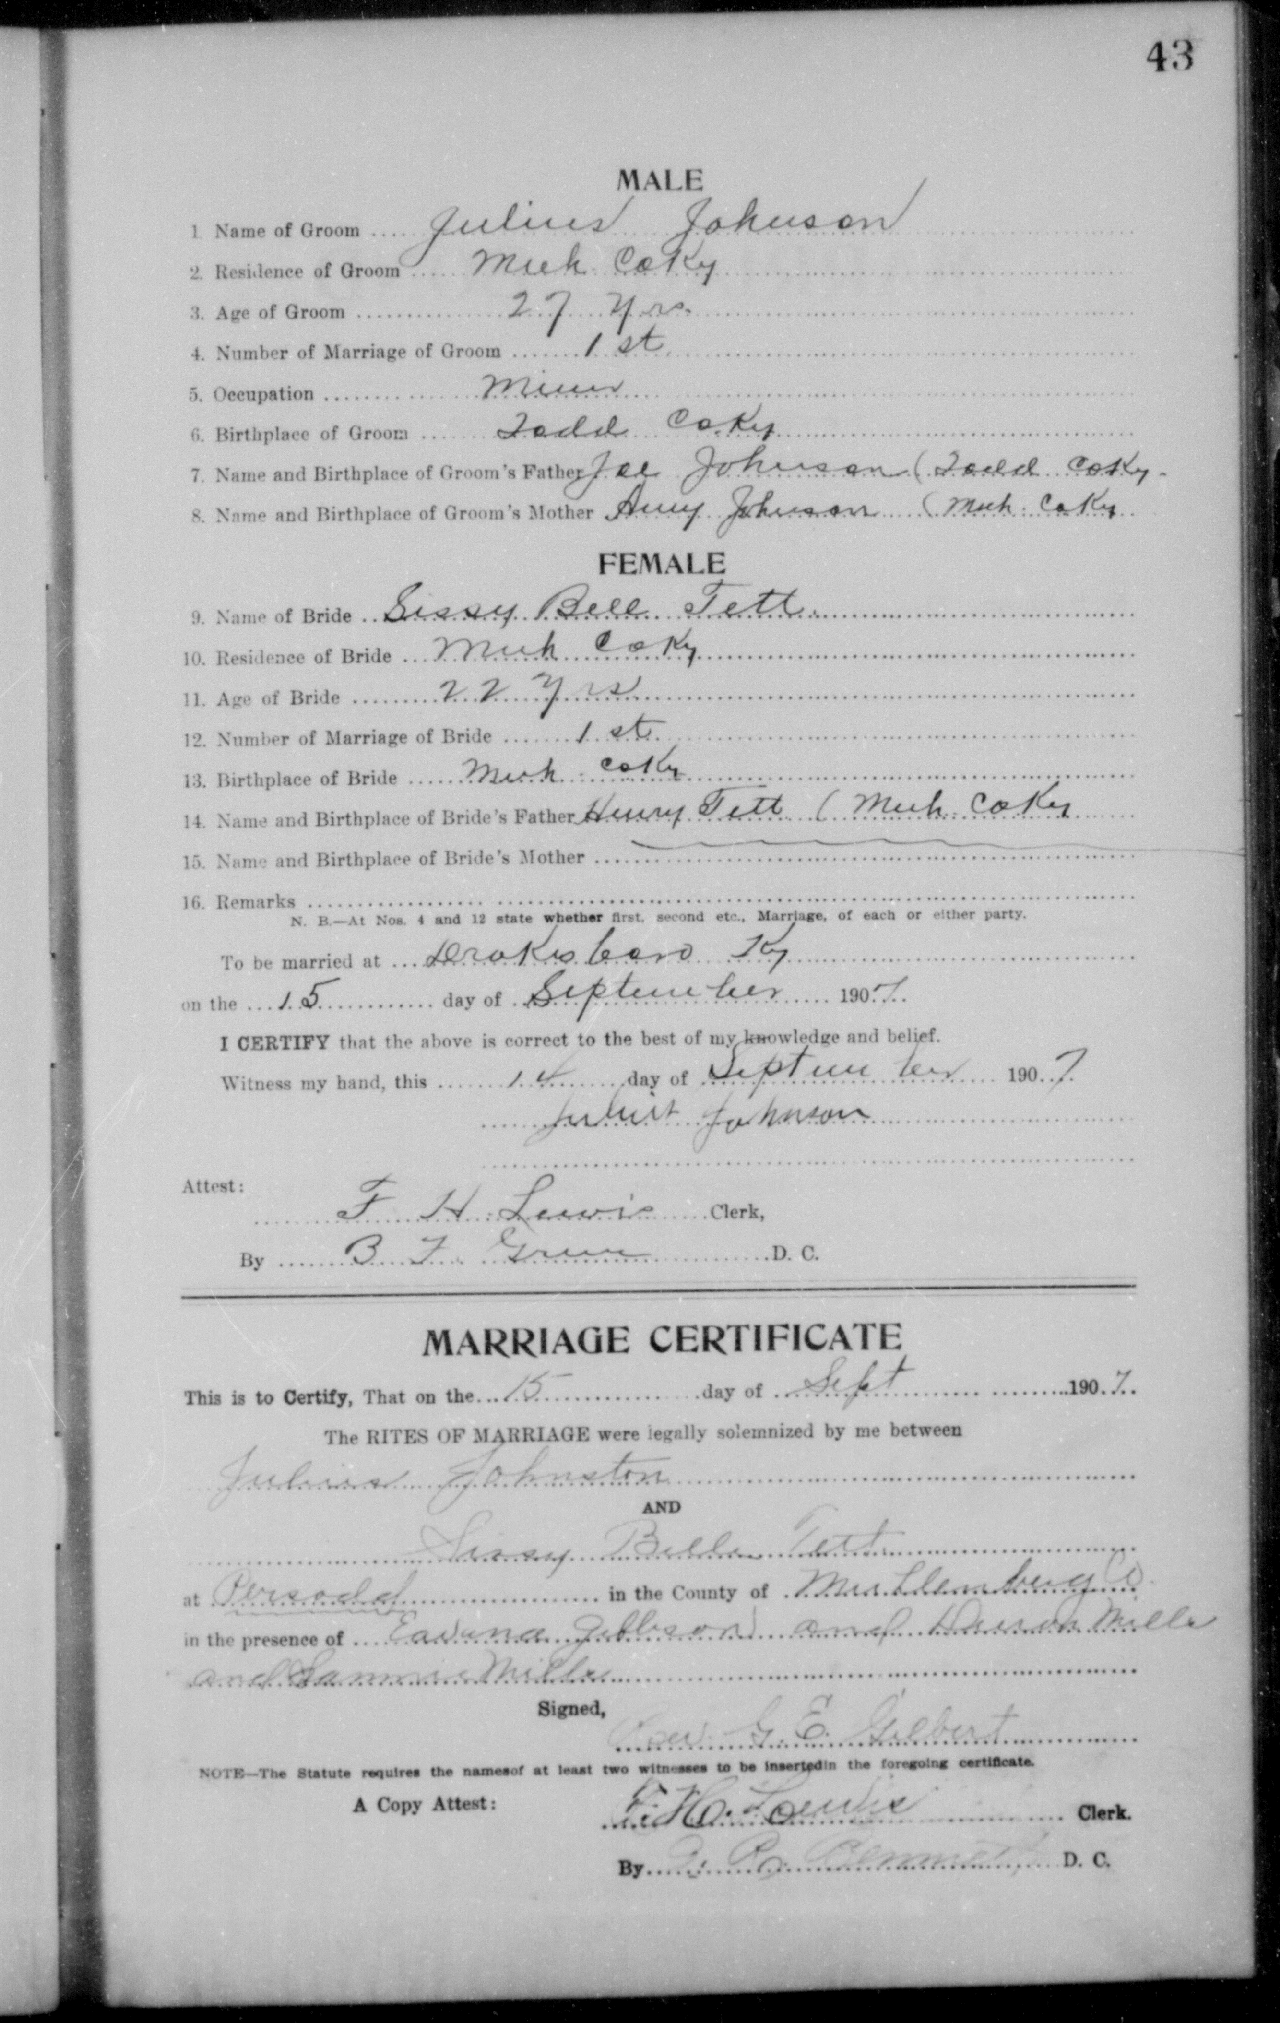 43
MALE
1. Name of Groom .... Julius Johnson
2. Residence of Groom .... Muh CoKy
3. Age of Groom .... 27 yrs.
4. Number of Marriage of Groom .... 1 st
5. Occupation .... Miner
6. Birthplace of Groom .... Todd CoKy
7. Name and Birthplace of Groom's Father Joe Johnson (Todd CoKy.
8. Name and Birthplace of Groom's Mother Amy Johnson (Muh CoKy
FEMALE
9. Name of Bride .. Sissy Bell Tett
10. Residence of Bride ... Muh CoKy
11. Age of Bride .... 22 yrs
12. Number of Marriage of Bride .... 1 st
13. Birthplace of Bride .... Muh CoKy
14. Name and Birthplace of Bride's Father Henry Tett (Muh CoKy
15. Name and Birthplace of Bride's Mother ....
16. Remarks ....
N. B.—At Nos. 4 and 12 state whether first, second etc., Marriage, of each or either party.
To be married at ... Drakesboro Ky
on the ... 15 .... day of .. September .... 1907.
I CERTIFY that the above is correct to the best of my knowledge and belief.
Witness my hand, this .... 14 .... day of September .... 1907.
Johnson
Attest:
F H Lewis .... Clerk,
By .... B F Green .... D. C.
MARRIAGE CERTIFICATE
This is to Certify, That on the ... 15 .... day of .. Sept .... 1907.
The RITES OF MARRIAGE were legally solemnized by me between
Julius Johnston
AND
Sissy Belle Tett
at .... in the County of .. Muhlenberg Co.
in the presence of ... Gibson and Mills
and Sammie Mills
Signed,
Rev G. E. Gilbert
NOTE—The Statute requires the namesof at least two witnesses to be insertedin the foregoing certificate.
A Copy Attest: F. H. Lewis .... Clerk.
By .... Bennett .... D. C.